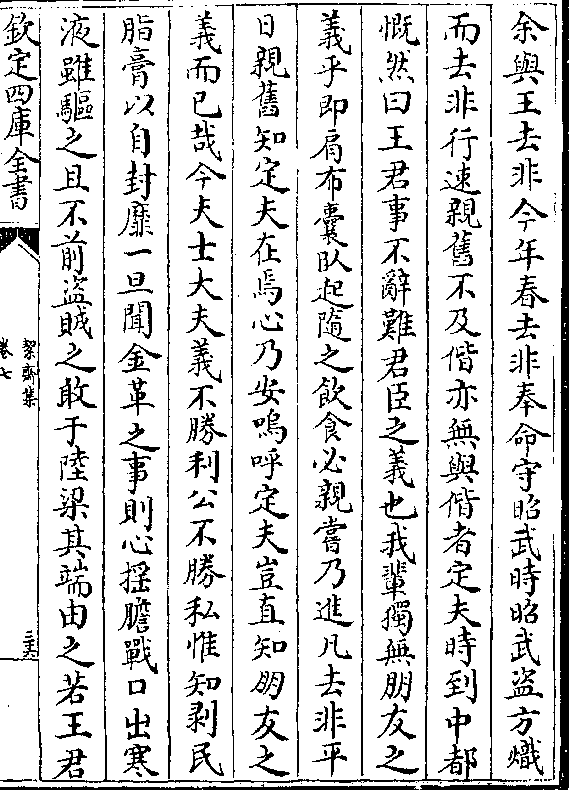 余與王去非今年春去非奉命守昭武時昭武盜方熾
而去非行速親舊不及偕亦無與偕者定夫時到中都
慨然曰王君事不辭難君臣之義也我輩獨無朋友之
義乎即肩布囊臥起隨之飲食必親嘗乃進凡去非平
日親舊知定夫在焉心乃安嗚呼定夫豈直知朋友之
義而已哉今夫士大夫義不勝利公不勝私惟知剥民
脂膏以自封靡一旦聞金革之事則心揺膽戰口出寒
液雖驅之且不前盜賊之敢于陸梁其端由之若王君
欽定四庫全書
絜齋集
卷七